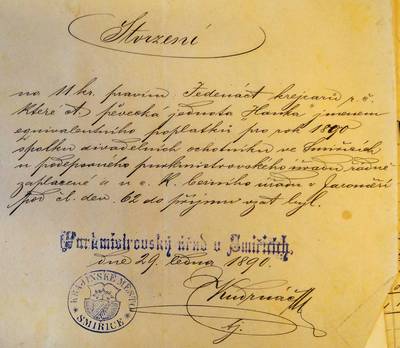 Stvrzení
na 11 kr. pravím Jedenáct krejcarů r. č.
které sl. pěvecká jednota "Hanka" jmenem
equivalentního poplatku pro rok 1890
spolku divadelních ochotníků ve Smiřicích
u podepsaného purkmistrovského úřadu řádně
zaplacené a u c. k. berního úřadu v Jaroměři
pod čl. den. 62 do příjmu vzat byl.
Purkmistrovský úřad v Smiřicích,
dne 29. ledna 1890.
KRAJINSKÉ MĚSTO
SMIŘICE